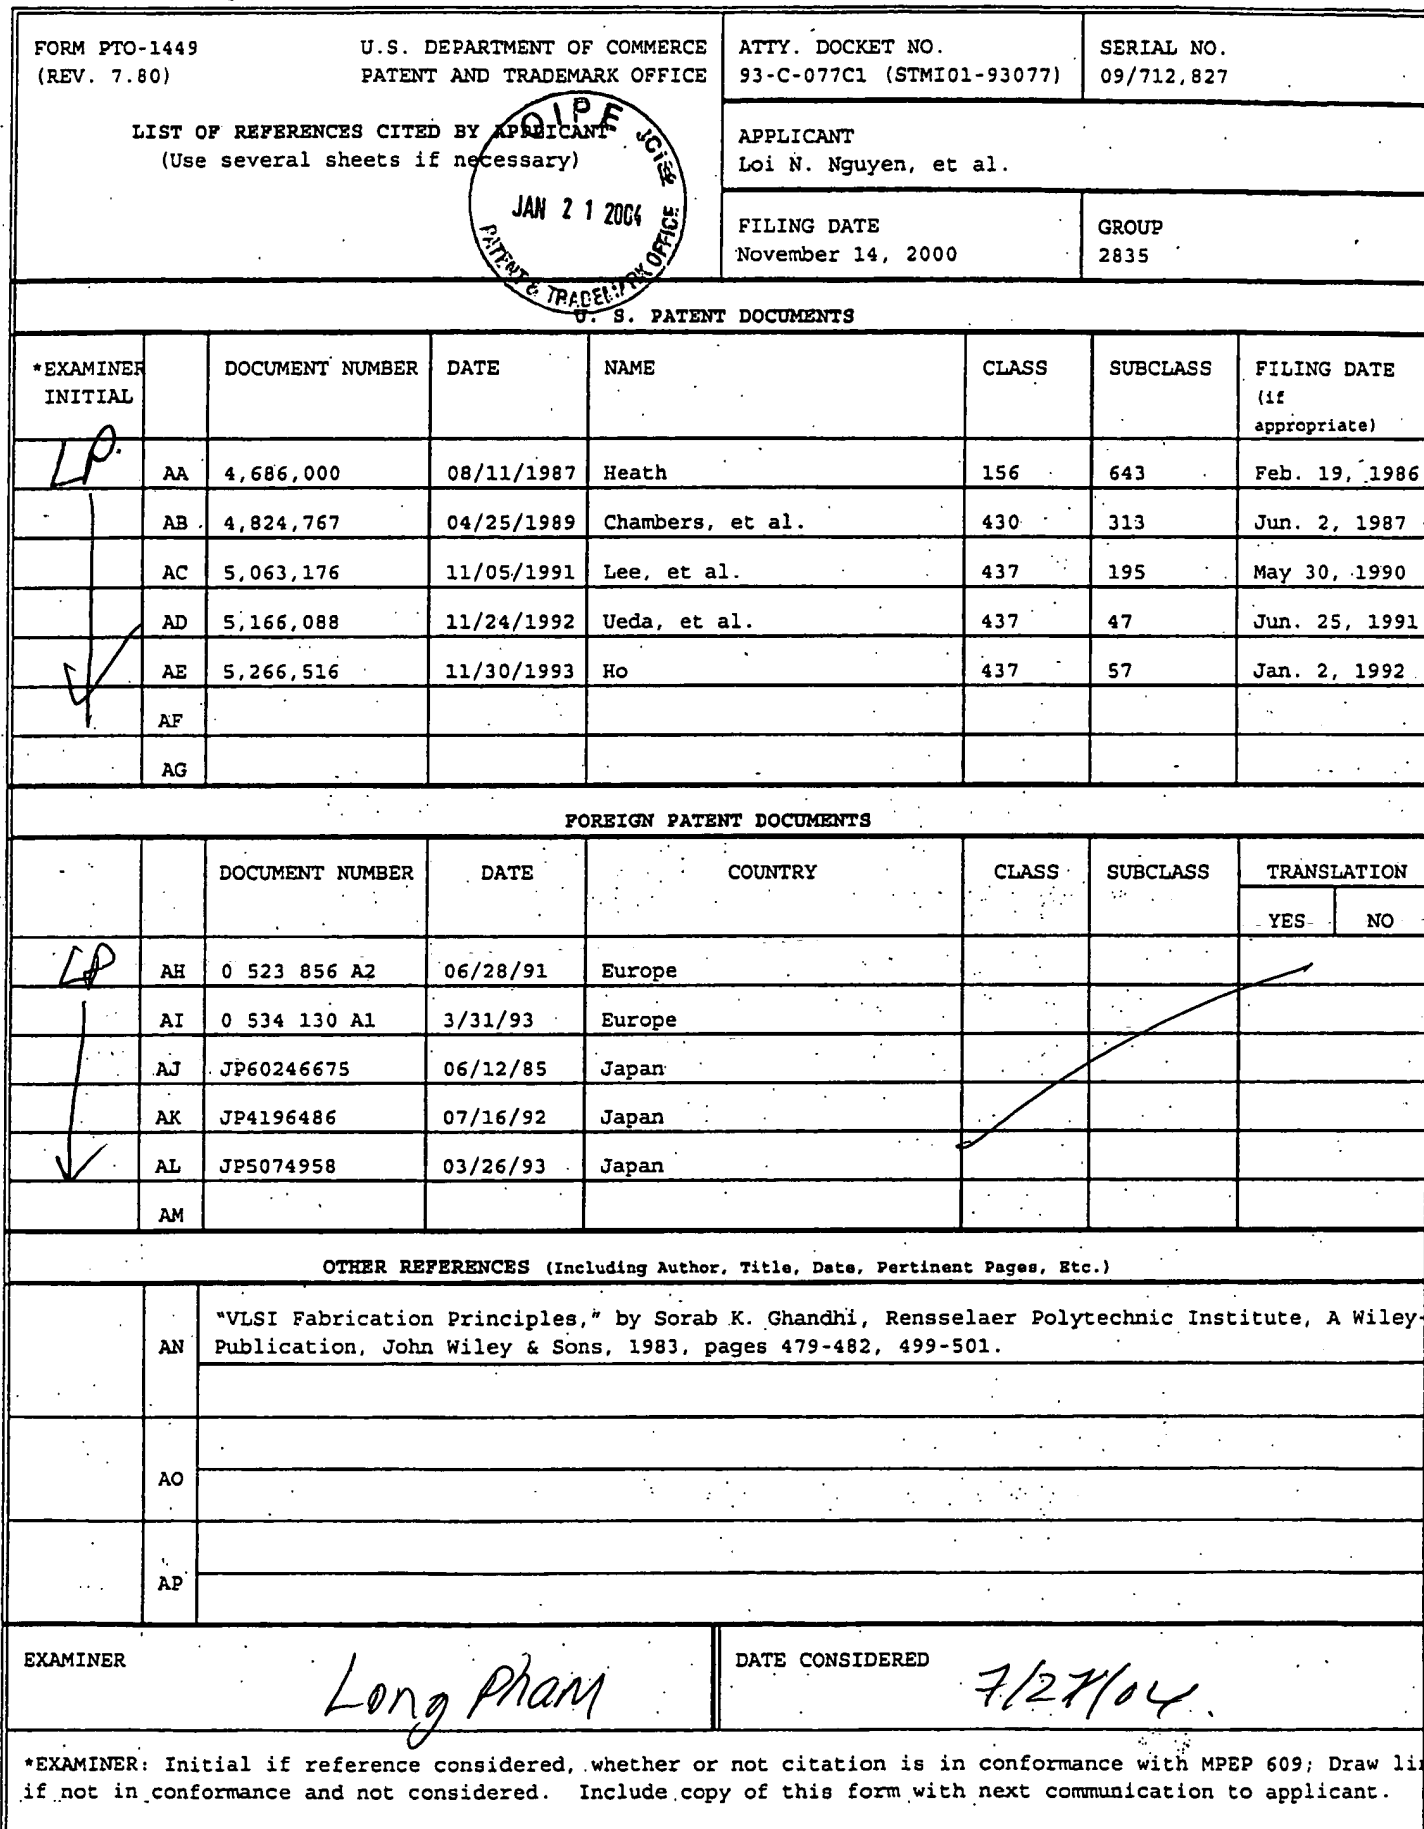 FORM PTO-1449 U.S. DEPARTMENT OF COMMERCE
(REV. 7.80) PATENT AND TRADEMARK OFFICE
ATTY. DOCKET NO.
93-C-077C1 (STMI01-93077)
SERIAL NO.
09/712,827
LIST OF REFERENCES CITED BY APPLICANT
(Use several sheets if necessary)
OIPE
JAN 21 2004
PATENT & TRADEMARK OFFICE
APPLICANT
Loi N. Nguyen, et al.
FILING DATE
November 14, 2000
GROUP
2835
U. S. PATENT DOCUMENTS
*EXAMINER INITIAL DOCUMENT NUMBER DATE NAME CLASS SUBCLASS FILING DATE (if appropriate)
LP. AA 4,686,000 08/11/1987 Heath 156 643 Feb. 19, 1986
AB 4,824,767 04/25/1989 Chambers, et al. 430 313 Jun. 2, 1987
AC 5,063,176 11/05/1991 Lee, et al. 437 195 May 30, 1990
AD 5,166,088 11/24/1992 Ueda, et al. 437 47 Jun. 25, 1991
AE 5,266,516 11/30/1993 Ho 437 57 Jan. 2, 1992
AF
AG
FOREIGN PATENT DOCUMENTS
DOCUMENT NUMBER DATE COUNTRY CLASS SUBCLASS TRANSLATION
YES NO
LP AH 0 523 856 A2 06/28/91 Europe
AI 0 534 130 A1 3/31/93 Europe
AJ JP60246675 06/12/85 Japan
AK JP4196486 07/16/92 Japan
AL JP5074958 03/26/93 Japan
AM
OTHER REFERENCES (Including Author, Title, Date, Pertinent Pages, Etc.)
AN "VLSI Fabrication Principles," by Sorab K. Ghandhi, Rensselaer Polytechnic Institute, A Wiley-
Publication, John Wiley & Sons, 1983, pages 479-482, 499-501.
AO
AP
EXAMINER Long Pham
DATE CONSIDERED 7/27/04.
*EXAMINER: Initial if reference considered, whether or not citation is in conformance with MPEP 609; Draw
if not in conformance and not considered. Include copy of this form with next communication to applicant.